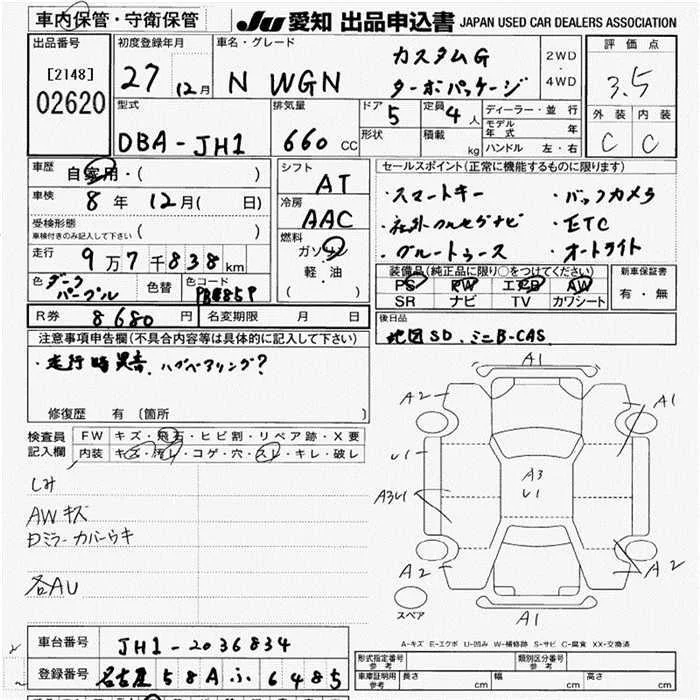 車内保管・守衛保管
JU 愛知 出品申込書 JAPAN USED CAR DEALERS ASSOCIATION
出品番号
[2148]
02620
初度登録年月
27 12月
車名・グレード
N WGN
カスタムG
ターボパッケージ
2WD
・
4WD
評価点
3.5
外装 内装
C C
型式
DBA-JH1
排気量
660 CC
ドア 5
定員 4人
形状
積載 kg
ディーラー・並行
モデル年式 年
ハンドル 左・右
車歴 自家用・( )
車検 8年12月( 日)
受検形態
車検付きのみ記入して下さい ( )
走行 9万7千838km
色 ダークパープル
色替
色コード PB85P
シフト
AT
冷房
AAC
燃料
ガソリン
軽・油
( )
セールスポイント(正常に機能するものに限ります)
・スマートキー ・バックカメラ
・社外フルセグナビ ・ETC
・ブルートゥース ・オートライト
装備品(純正品に限り○をつけてください)
PS PW エアB AW
SR ナビ TV カワシート
新車保証書
有・無
R券 8680円
名変期限 月 日
後日品
地図SD、ミニB-CAS
注意事項申告欄(不具合内容等は具体的に記入して下さい)
・走行時異音、ハブベアリング?
修復歴 有 〔箇所 〕
検査員記入欄
FW キズ・飛石・ヒビ割・リペア跡・X要
内装 キズ・汚れ・コゲ・穴・スレ・キレ・破レ
しみ
AWキズ
Dミラーカバーウキ
各AU
A1
A2
A1
U1
A3
U1
A3U1
A2
A2
A1
スペア
A-キズ E-エクボ U-凹み W-補修跡 S-サビ C-腐食 XX-交換済
車台番号 JH1-2036834
登録番号 名古屋 58A ふ 6485
形式指定番号
参考
類別区分番号
参考
車庫証明用
参考
長さ cm 幅 cm 高さ cm